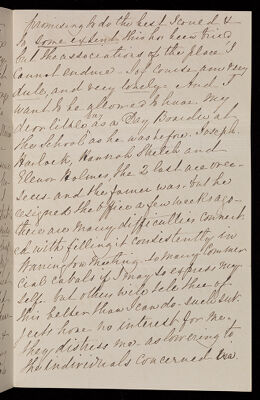 promising to do the best I could &
to some extent this has been tried
but the associations of the place I
cannot endure. I of course am very
dull, and very lonely. And I
want to be allowed to have My
dear little boy as a Day Boarder at
the School as he was before. Joseph
Hannah and
Elenor Holmes, the 2 last are over-
seers and the former was. but he
resigned the office a few weeks ago.
there are many difficulties connect
ed with filling it consistently in
meeting. so many Commer
cial cabals if I may so express my
self. but others will tell thee of
this better than I can do. such sub
jects have no interest for me,
they distress me as lowering to
the individuals concerned